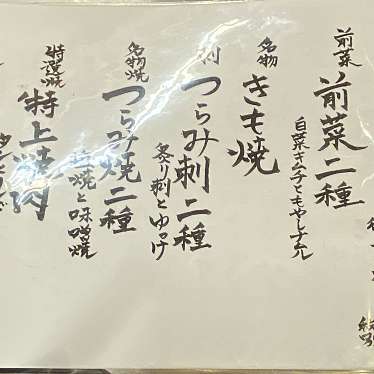 前菜
前菜二種
白菜キムチともやしナムル
名物
きも焼
刺
つらみ刺二種
炙り刺とゆっけ
名物焼
つらみ焼二種
塩焼と味噌焼
特選焼
特上焼肉